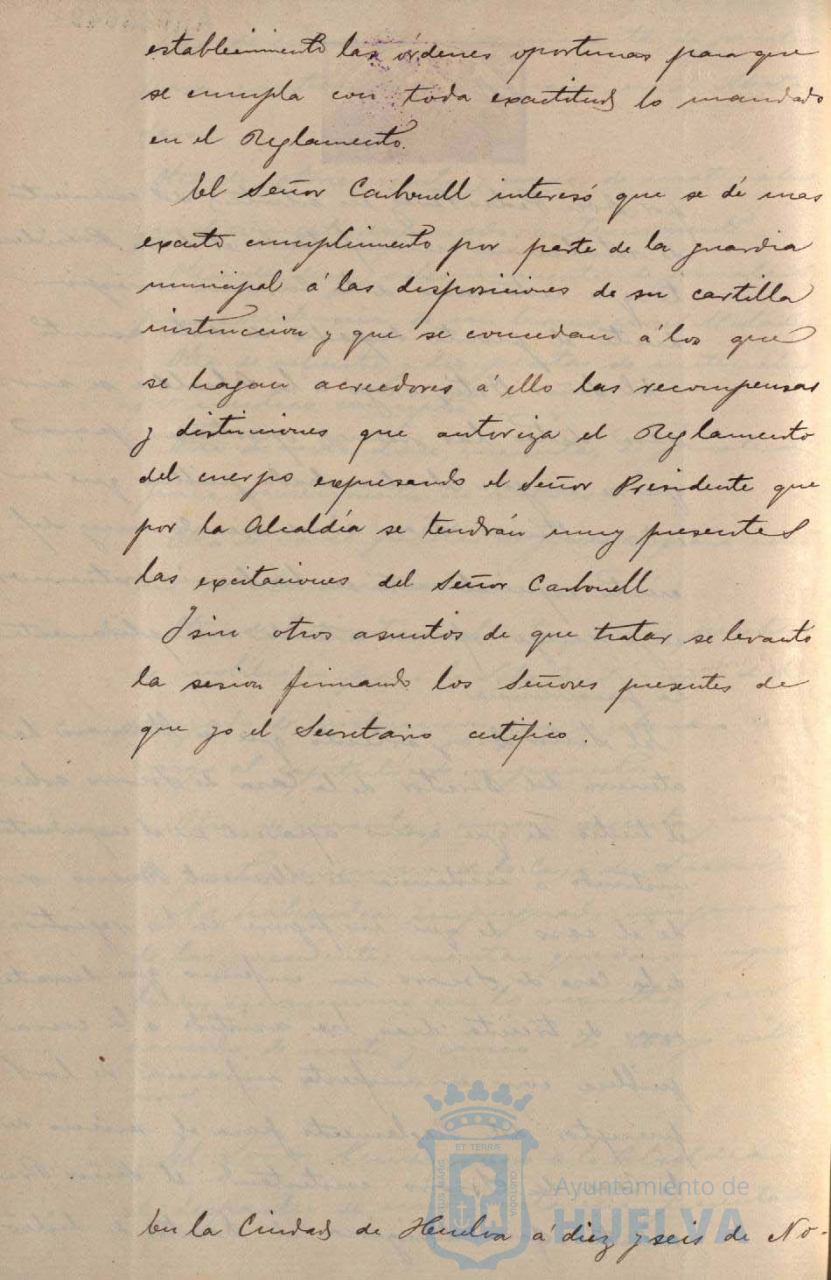 establecimiento las órdenes oportunas para que
se cumpla con toda exactitud lo mandado
en el Reglamento.
El Señor Carbonell interesó que se dé mas
exacto cumplimiento por parte de la guardia
municipal á las disposiciones de su cartilla
instruccion y que se concedan á los que
se hagan acreedores á ello las recompensas
y distinciones que autoriza el Reglamento
del cuerpo expresando el Señor Presidente que
por la Alcaldía se tendrán muy presentes
las excitaciones del Señor Carbonell
Y sin otros asuntos de que tratar se levantó
la sesion firmando los Señores presentes de
que yo el Secretario certifico.
ET TERRÆ
PORTUS MARIS
CUSTODIA
Ayuntamiento de
HUELVA
En la Ciudad de Huelva á diez y seis de No-